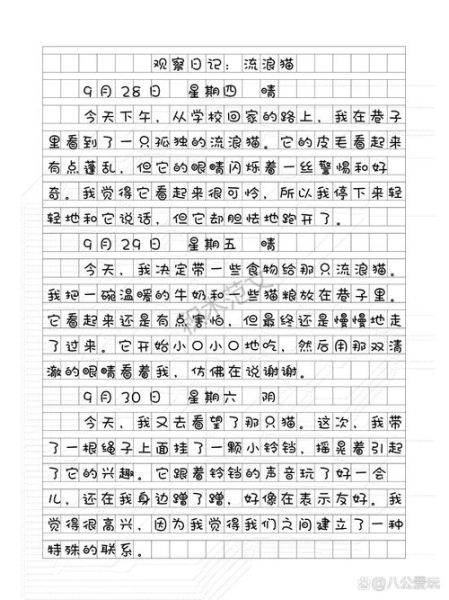 观察日记：流浪猫
9月28日 星期四 晴
今天下午，从学校回家的路上，我在巷子
里看到了一只孤独的流浪猫。它的皮毛看起来
有点蓬乱，但它的眼睛闪烁着一丝警惕和好
奇。我觉得它看起来很可怜，所以我停下来轻
轻地和它说话，但它却胆怯地跑开了。
9月29日 星期五 晴
今天，我决定带一些食物给那只流浪猫。
我把一碗温暖的牛奶和一些猫粮放在巷子里。
它看起来还是有点害怕，但最终还是慢慢地走
了过来。它开始小口小口地吃，然后用那双清
澈的眼睛看着我，仿佛在说谢谢。
9月30日 星期六 阴
今天，我又去看望了那只猫。这次，我带
了一根绳子上面挂了一颗小铃铛，摇晃着引起
了它的兴趣。它跟着铃铛的声音玩了好一会
儿，还在我身边蹭了蹭，好像在表示友好。我
觉得很高兴，因为我觉得我们之间建立了一种
特殊的联系。
@八公爱玩